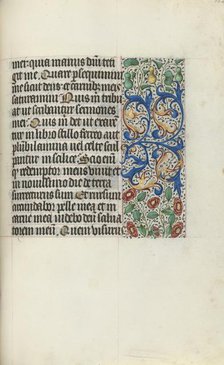 mei: quia manus dñi teti
git me. Quare persequimini
me sicut deus et carnib3 meis
saturamini Quis m̃ tribu
at ut scribantur sermones
mei: Quis m̃ det ut exarẽ
tur in libro stillo ferreo aut
plũbi lamina vel celte scul
pantur in salice Scio eñi
q̃ redemptor meus vivit et
in novissimo die de terra
surrecturus sum Et rursum
circũdabor pelle mea et in
carne mea videbo deũ salva
torem meũ. Quem visurus